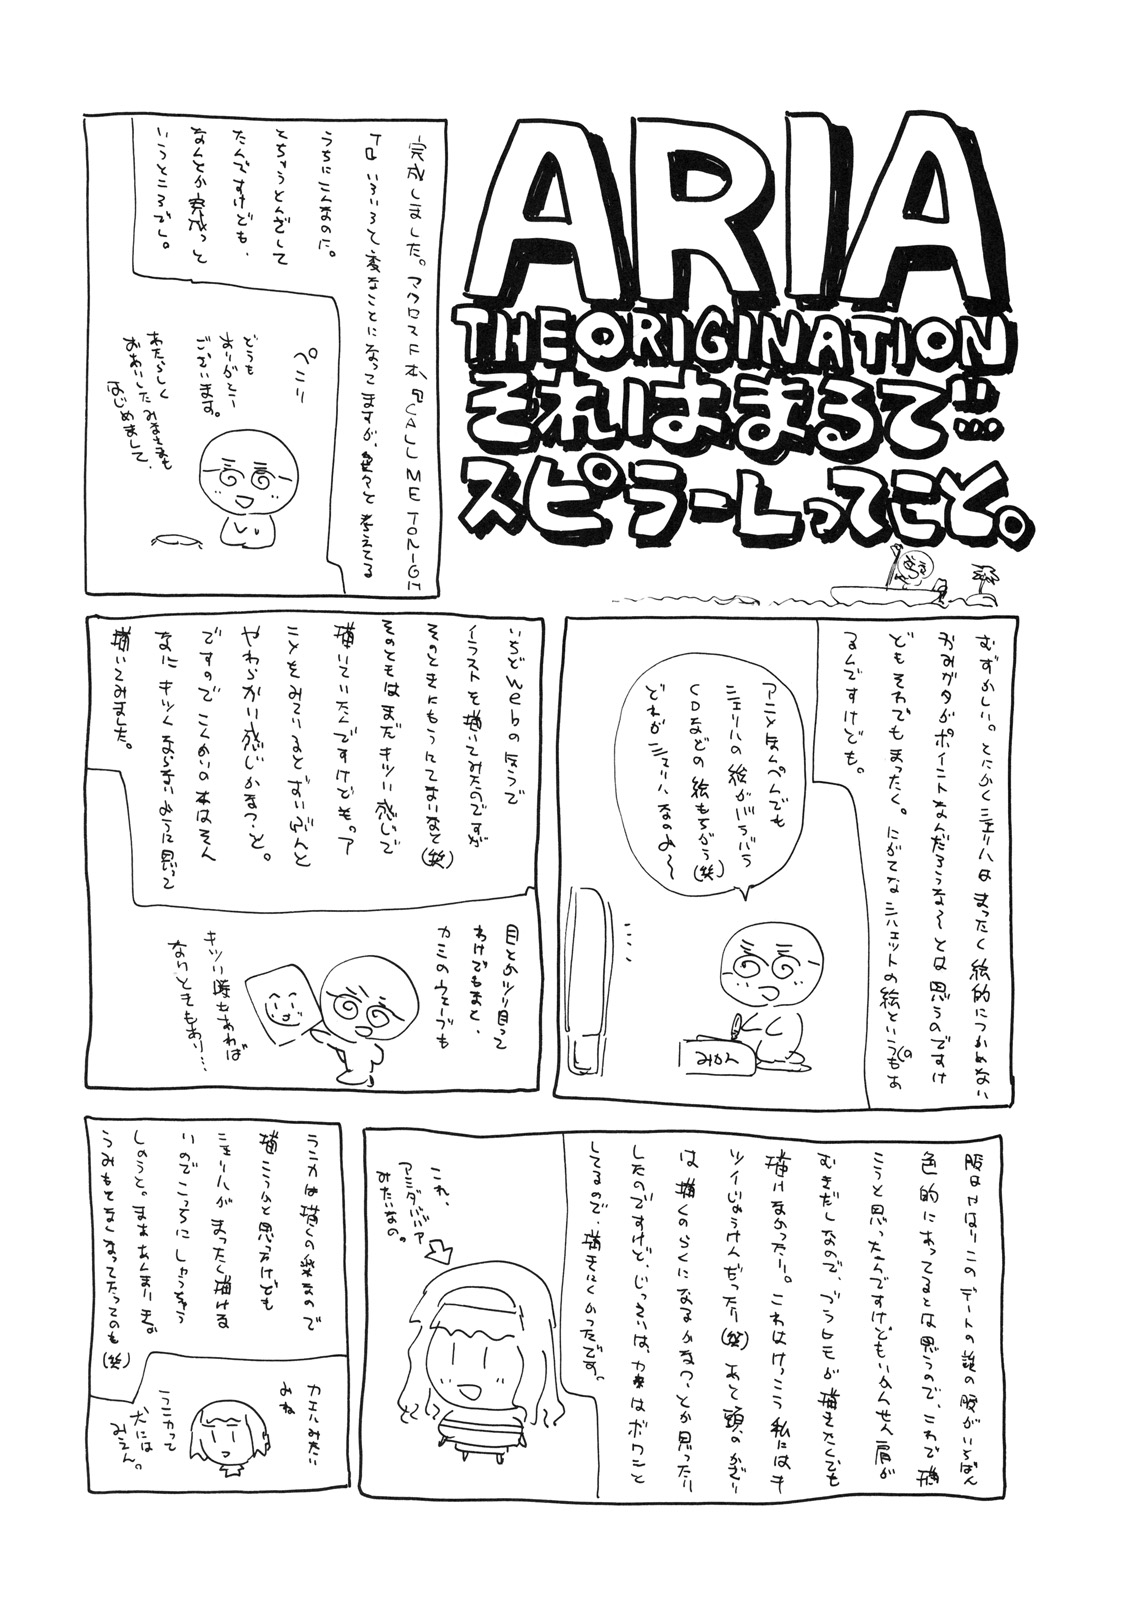 ARIA
THE ORIGINATION
それはまるで…
スピラーレってこと。
完成しました。マクロスF本『CALL ME TONIGH
T』いろいろと変なことになってますが、色々と考えてる
うちにこんなのに。
とちゅうとんざして
たんですけども、
なんとか完成っと
いうところでし。
ペこり
どうも
ありがとう
ございます。
あたらしく
おあいしたみなさまも
はじめまして、
むずかしい。とにかくシェリルはまったく絵的につかめない
かみガタがポイントなんだろうな～とは思うのですけ
どもそれでもまったく。にがてなシルエットの絵というのもあ
るんですけども。
アニメほんぺんでも
シェリルの絵がバラバラ
CDなどの絵もちがう(笑)
どれがシェリルなのよ～
みかん
いちどwebのほうで
イラストを描いてみたのですが
そのときにもうにてないなと(笑)
そのときはまだキツい感じで
描いていたんですけどもっア
ことをみているとずいぶんと
やわらかい感じかなっ、と。
ですのでこんかいの本はそん
なにキツくならないように思って
描いてみました。
目とかツリ目って
わけでもなく、
カミのウェーブも
キツい時もあれば
なりときもあり…
服はやはりこのデートの話の服がいちばん
色的にあってるとは思うので、これで描
こうと思ったんですけどもいかんせん肩が
むきだしなので、ブラヒモが描きたくても
描けなかったり。これはけっこう私にはキ
ツイじょうけんだったり(笑)あと頭のかざり
は描くのラクになるかなっ、とか思ったり
したのですけど、じっさいは、カオはボクこと
してるので、描きにくかったです。
これ、
アミダババア
みたいなの。
ランカは描くの楽なので
描こうかと思ったけども
シェリルがまったく描ける
いのでこっちにしゅっちゅう
しようと。まああんまりイミな
うみもなくなってたってのも(笑)
カエルみたい
みね
ランカって
犬には
みえん。